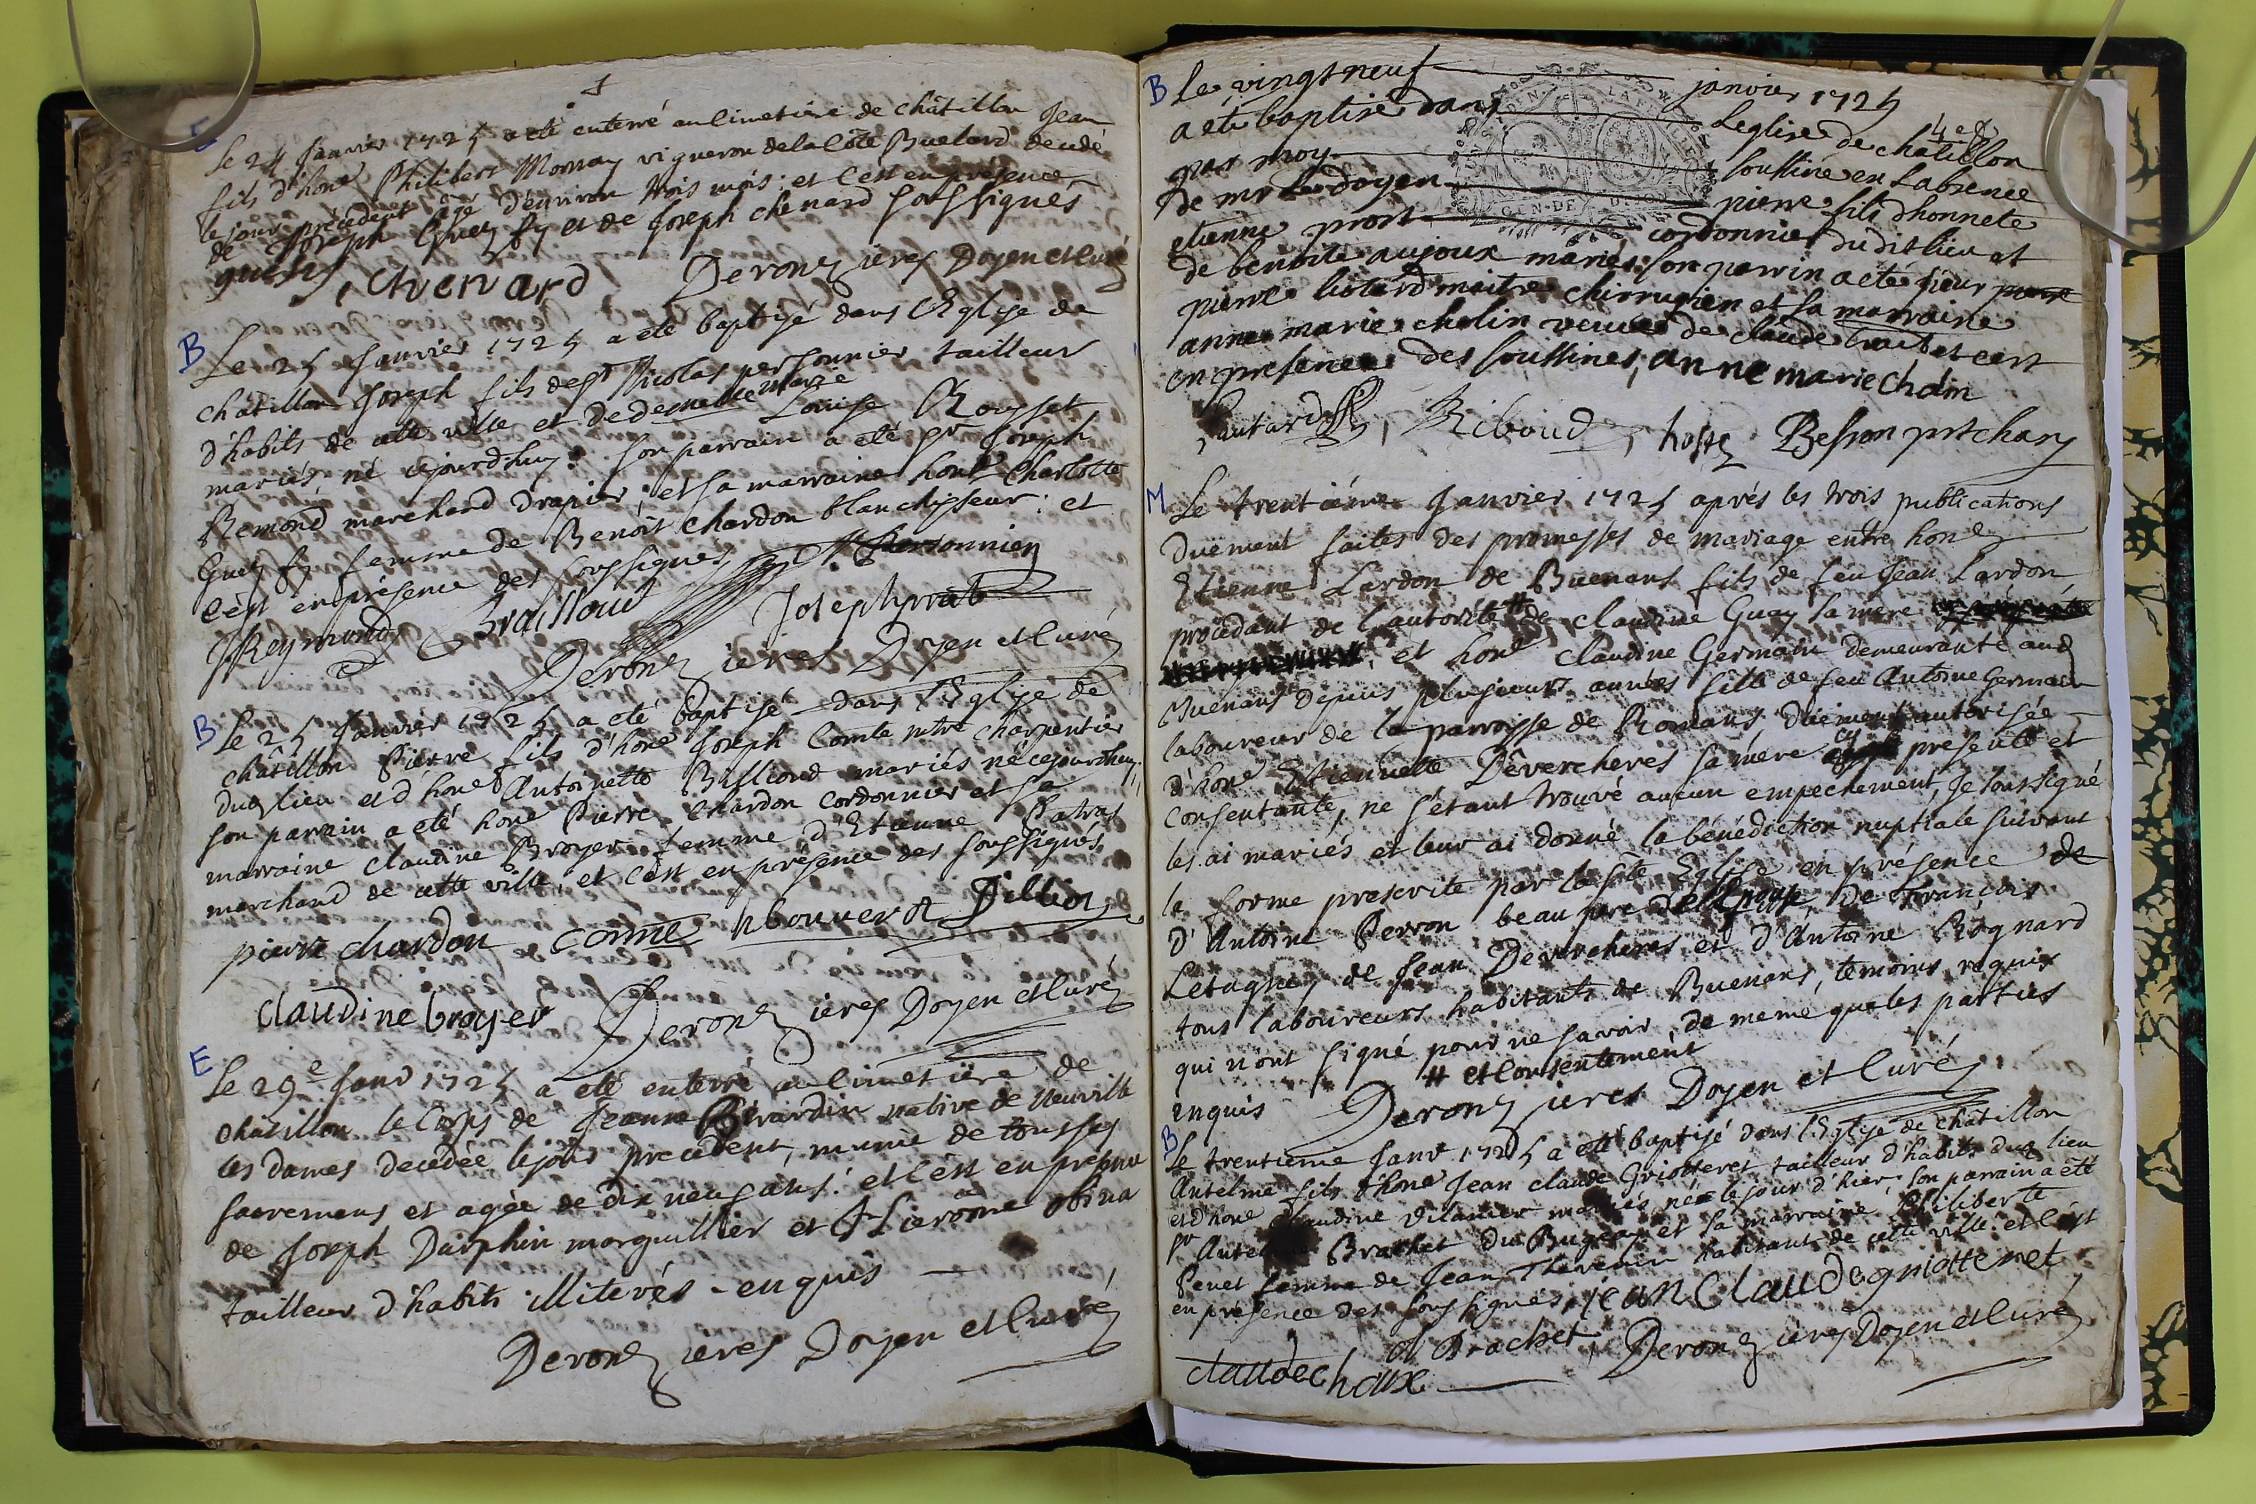 E
Le 24 Janvier 1725 a eté enterré au Cimetière de châtillon Jean
fils d'hone Philibert Monnay vigneron de la Côte Buelard decedé
le jour précédent agé d'environ trois mois: et c'est en présence
de Joseph Guey fy et de Joseph chenard soussignés
chenard Derongieres Doyen et Curé
B
Le 25 Janvier 1725 a eté baptisé dans l'Eglise de
châtillon Joseph fils de Sr Nicolas personnier tailleur
d'habits de cette ville et de demelle marie Louise Rousset
mariés, né cejourd'huy: son parrain a eté Sr Joseph
Remond marchand Drapier: et sa marraine hone Charlotte
Guey fy femme de Benoit chardon blanchisseur: et
c'est en présence des soussignés N Personnier
JReymond Braillaud Joseph prat
Derongieres Doyen et Curé
B
Le 25 Janvier 1725 a eté baptisé dans l'Eglise de
châtillon Pierre fils d'hone Joseph Comte mtre charpentier
dud lieu et d'hone Antoinette Billioud mariés né cejourdhuy:
son parrain a eté hone Pierre Chardon cordonnier et sa
marraine claudine Broyer femme d'Etienne Patras
marchand de cette ville, et c'est en présence des soussignés
pierre chardon comte n bouverot Dillion
claudine broyer Derongieres Doyen et Curé
E
Le 29e Janv 1725 a eté enterré au Cimetière de
châtillon le Corps de Jeanne Birardin native de Neuville
les dames decédée le jour précédent, munie de tous ses
sacremens et agée de dix neuf ans: et c'est en présence
de Joseph Dauphin marguillier et de hierome
tailleur d'habits illiterés - enquis
Derongieres Doyen et Curé
B
Le vingt neuf janvier 1725
a eté baptisé dans Leglise de châtillon
par moy soussiné en Labsence
de mr Le doyen pierre fils dhonnete
etienne prost cordonnier dudit lieu et
de benoite aujoux mariés son parrain a eté sieur
pierre liotard maitre chirrugien et sa marraine
anne marie cholin veuve de claude trait et cest
en presence des soussinés, anne marie Cholin
Riboud, hoste Besson prt chan
M
Le trentième Janvier 1725 aprés les trois publications
duëment faites des promesses de mariage entre hone
Etienne Lardon de Buenans fils de feu Jean Lardon
procédant de l'autorité # de claudine Guay sa mere
et hone claudine Germain demeurante aud
Buenans depuis plusieurs années fille de feu Antoine Germain
laboureur de la parroisse de Romans duëment autorisée
d'hone Etiennette Dêvercheres sa mère cy presente et
consentante, ne s'étant trouvé aucun empechement, Je soussigné
les ai mariés et leur ai donné la bénédiction nuptiale suivant
la forme prescrite par la Ste Eglise en présence de
d'Antoine Perron beau pere de l'Epouse, de François
Letaghey de Jean Devercheres et d'Antoine Rognard
tous laboureurs habitants de Buenans, temoins requis
qui n'ont signé pour ne savoir, de meme que les parties
# et consentement
enquis Derongieres Doyen et Curé
B
Le trentième Janv 1725 a eté baptisé dans l'Eglise de châtillon
Antelme fils d'hone Jean claude Griotteret tailleur d'habits dud lieu
et d'hone claudine mariés, né le jour d'hier, son parrain a été
Sr Antelme Brachet du Bugey et sa marraine Philiberte
Penet femme de Jean Thevenin habitant de cette ville: et c'est
en présence des soussignés, jean claude griotteret
A Brachet, Derongieres Doyen et Curé
claude choux